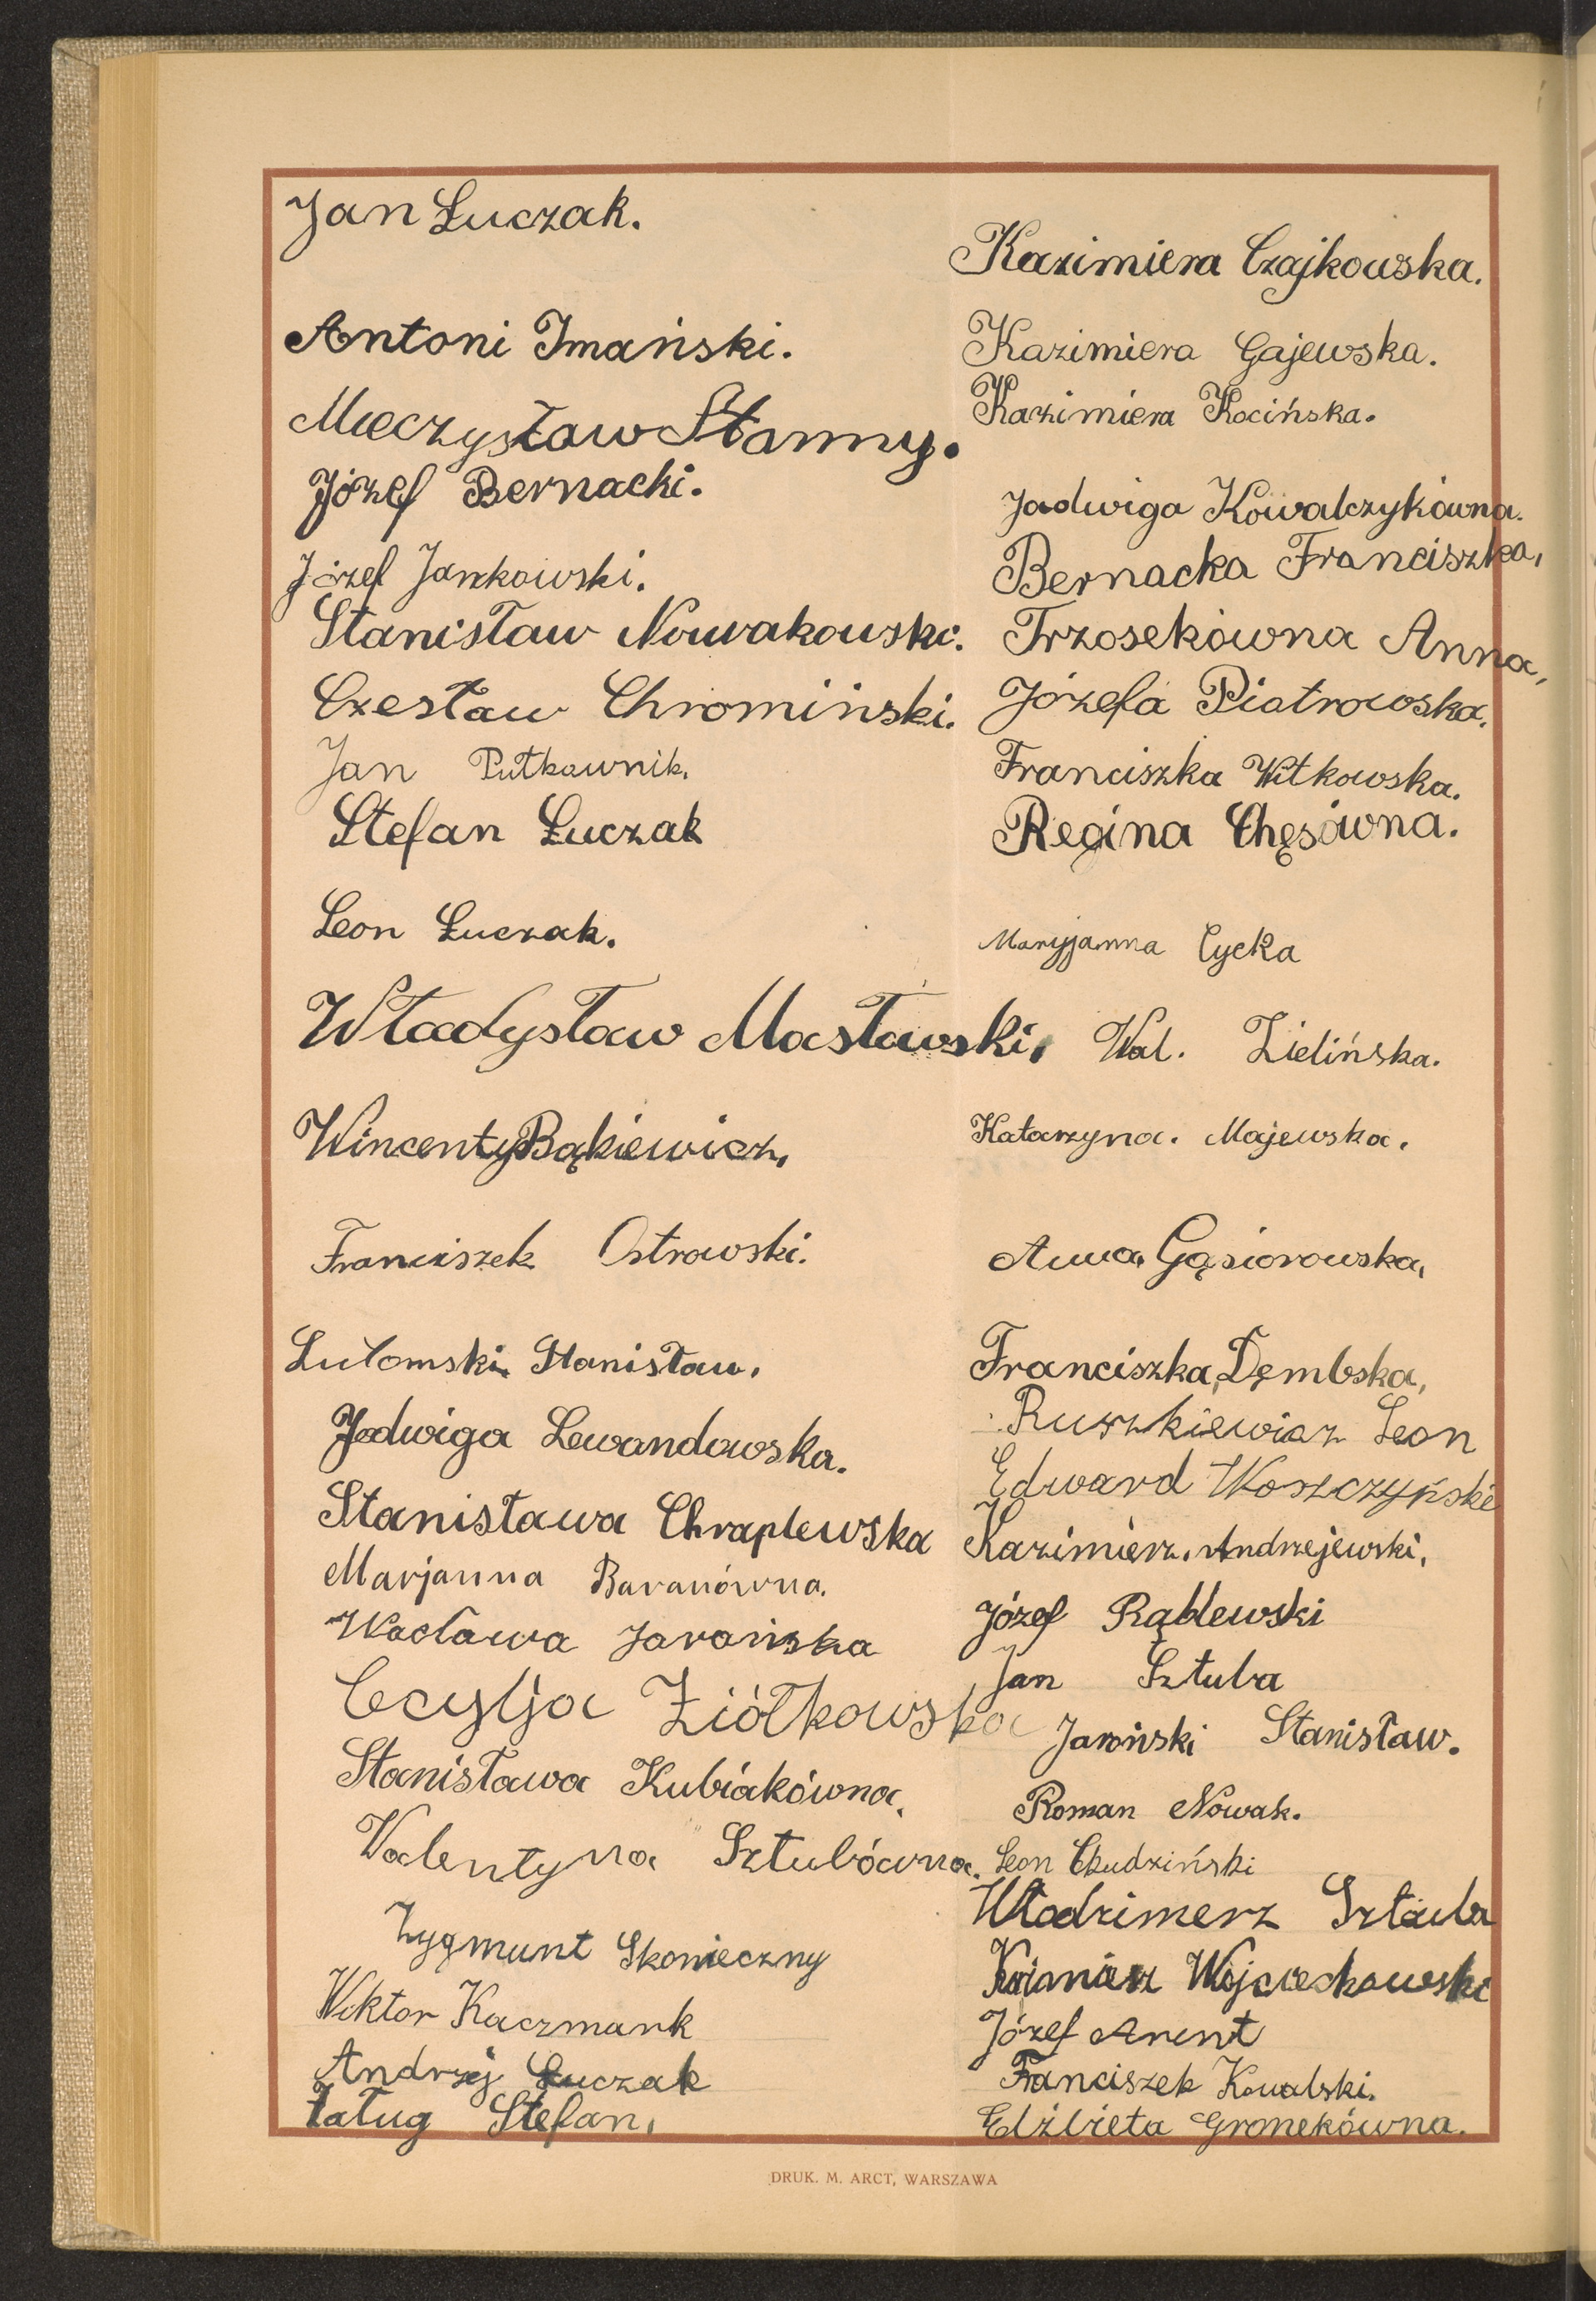 Jan Łuczak.
Antoni Imański.
Mieczysław Stanny.
Józef Bernacki.
Józef Jankowski.
Stanisław Nowakowski.
Czesław Chromiński.
Jan Putkownik.
Stefan Łuczak
Leon Łuczak.
Władysław Masławski.
Wincenty Bąkiewicz.
Franciszek Ostrowski.
Lutomski Stanisław.
Jadwiga Lewandowska.
Stanisława Chraplewska
Marjanna Baranówna.
Wacława Jarońska
Cecylja Ziółkowska
Stanisława Kubiakówna.
Walentyna Sztubówna.
Zygmunt Skonieczny
Wiktor Kaczmark
Andrzej Łuczak
Stefan.
Kazimiera Czajkowska.
Kazimiera Gajewska.
Kazimiera Kocińska.
Jadwiga Kowalczykówna.
Bernacka Franciszka.
Trzosekówna Anna.
Józefa Piotrowska.
Franciszka Witkowska.
Regina Chęsówna.
Maryjanna Cycka
Wal. Zielińska.
Katarzyna. Majewska.
Anna Gąsiorowska.
Franciszka Dembska.
Ruszkiewicz Leon
Edward Woszczyński
Kazimierz. Andrzejewski.
Józef Rąblewski
Jan Sztuba
Jaroński Stanisław.
Roman Nowak.
Leon Chudziński
Włodzimerz Sztuba
Wojciechowski
Józef Arent
Franciszek Kowalski.
Elżbieta Gronekówna.
DRUK. M. ARCT, WARSZAWA